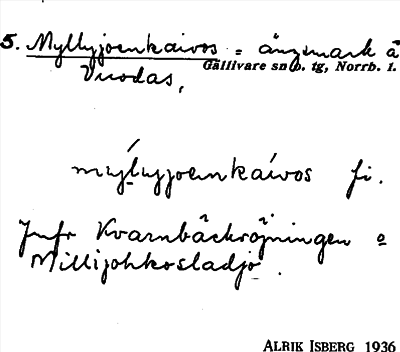 5. Myllyjoenkaivos = ängsmark å
Gällivare sn o. tg, Norrb. l.
Vuodas,
myllyjoenkaivos fi.
Jmfr Kvarnbäckröjningen o
Millijohkosladjo.
ALRIK ISBERG 1936